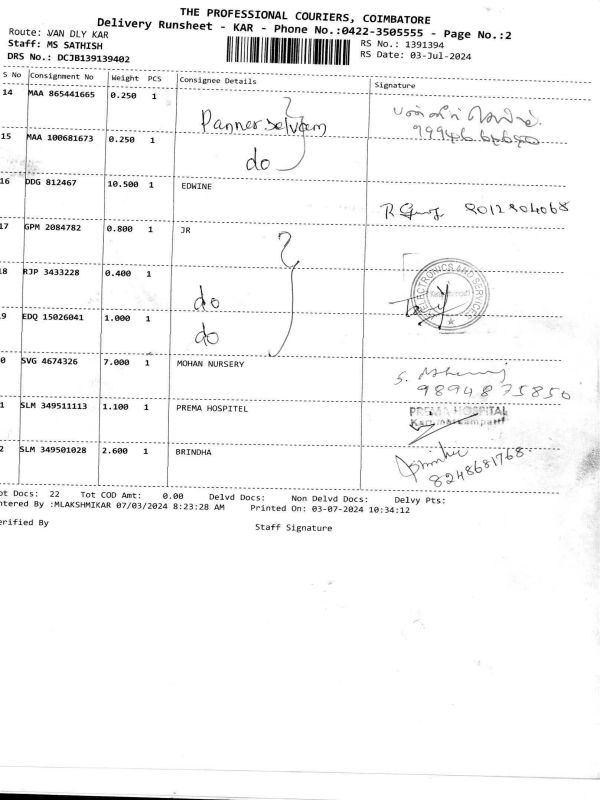 THE PROFESSIONAL COURIERS, COIMBATORE
Delivery Runsheet - KAR - Phone No.:0422-3505555 - Page No.:2
Route: VAN DLY KAR
RS No.: 1391394
Staff: MS SATHISH
RS Date: 03-Jul-2024
DRS No.: DCJB139139402
S No Consignment No Weight PCS Consignee Details Signature
14 MAA 865441665 0.250 1 Panner selvam
15 MAA 100681673 0.250 1 do
16 DDG 812467 10.500 1 EDWINE
17 GPM 2084782 0.800 1 JR
18 RJP 3433228 0.400 1 do
9 EDQ 15026041 1.000 1 do
ELECTRONICS AND SERVICES
0 SVG 4674326 7.000 1 MOHAN NURSERY
9894875850
1 SLM 349511113 1.100 1 PREMA HOSPITEL PREMA HOSPITAL
2 SLM 349501028 2.600 1 BRINDHA
8248681768
ot Docs: 22 Tot COD Amt: 0.00 Delvd Docs: Non Delvd Docs: Delvy Pts:
ntered By :MLAKSHMIKAR 07/03/2024 8:23:28 AM Printed On: 03-07-2024 10:34:12
erified By Staff Signature